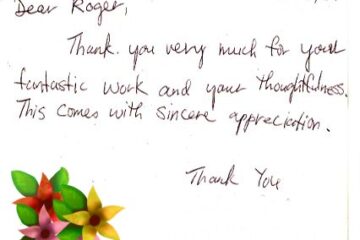 Dear Roger,
Thank you very much for your
fantastic work and your thoughtfulness.
This comes with sincere appreciation.
Thank You